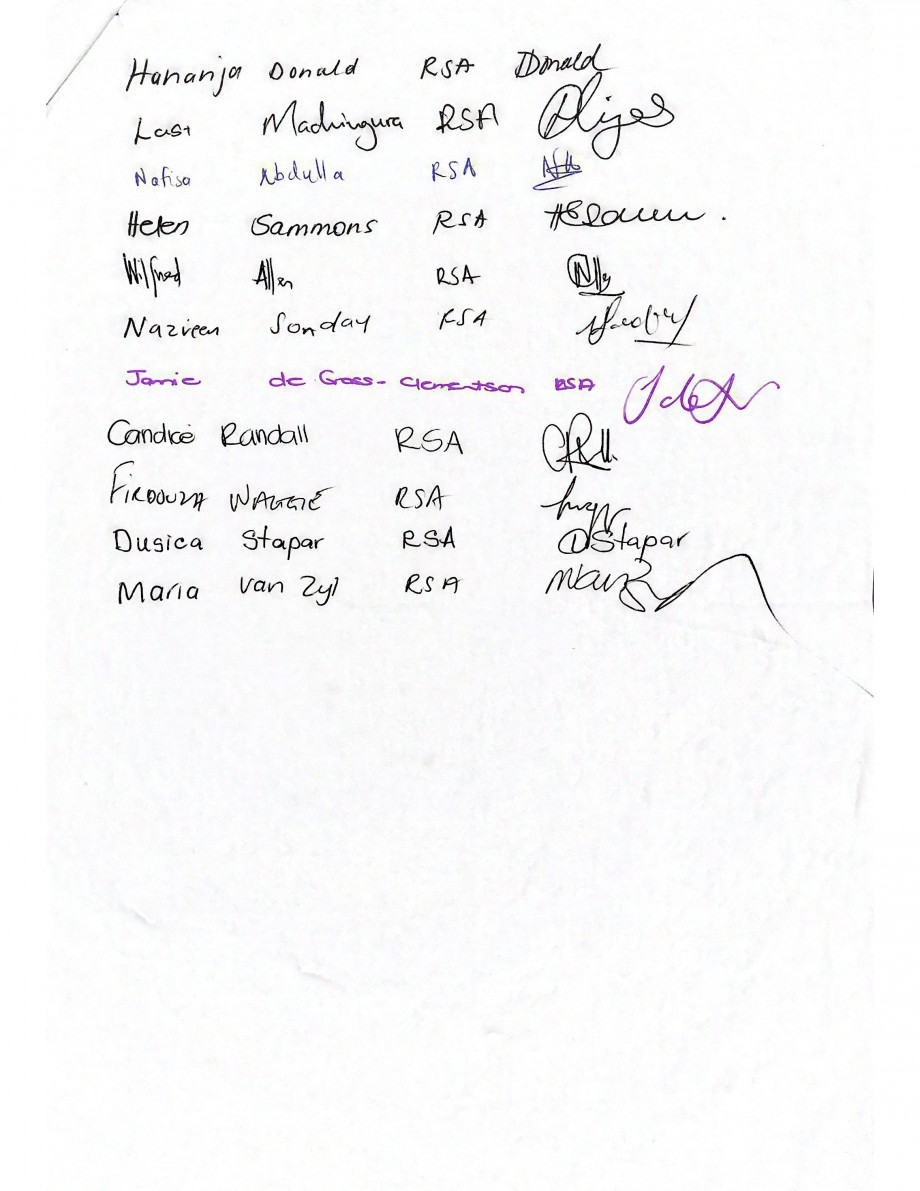 Hananja Donald RSA Donald
Last Madhingura RSA
Nafisa Abdulla RSA
Helen Sammons RSA
Wilfred Allen RSA
Nazreen Sonday RSA
Janie de Gross- Clementson RSA
Candicé Randall RSA
FIRDOUZA WAGGIE RSA
Dusica Stapar RSA DStapar
Maria van Zyl RSA